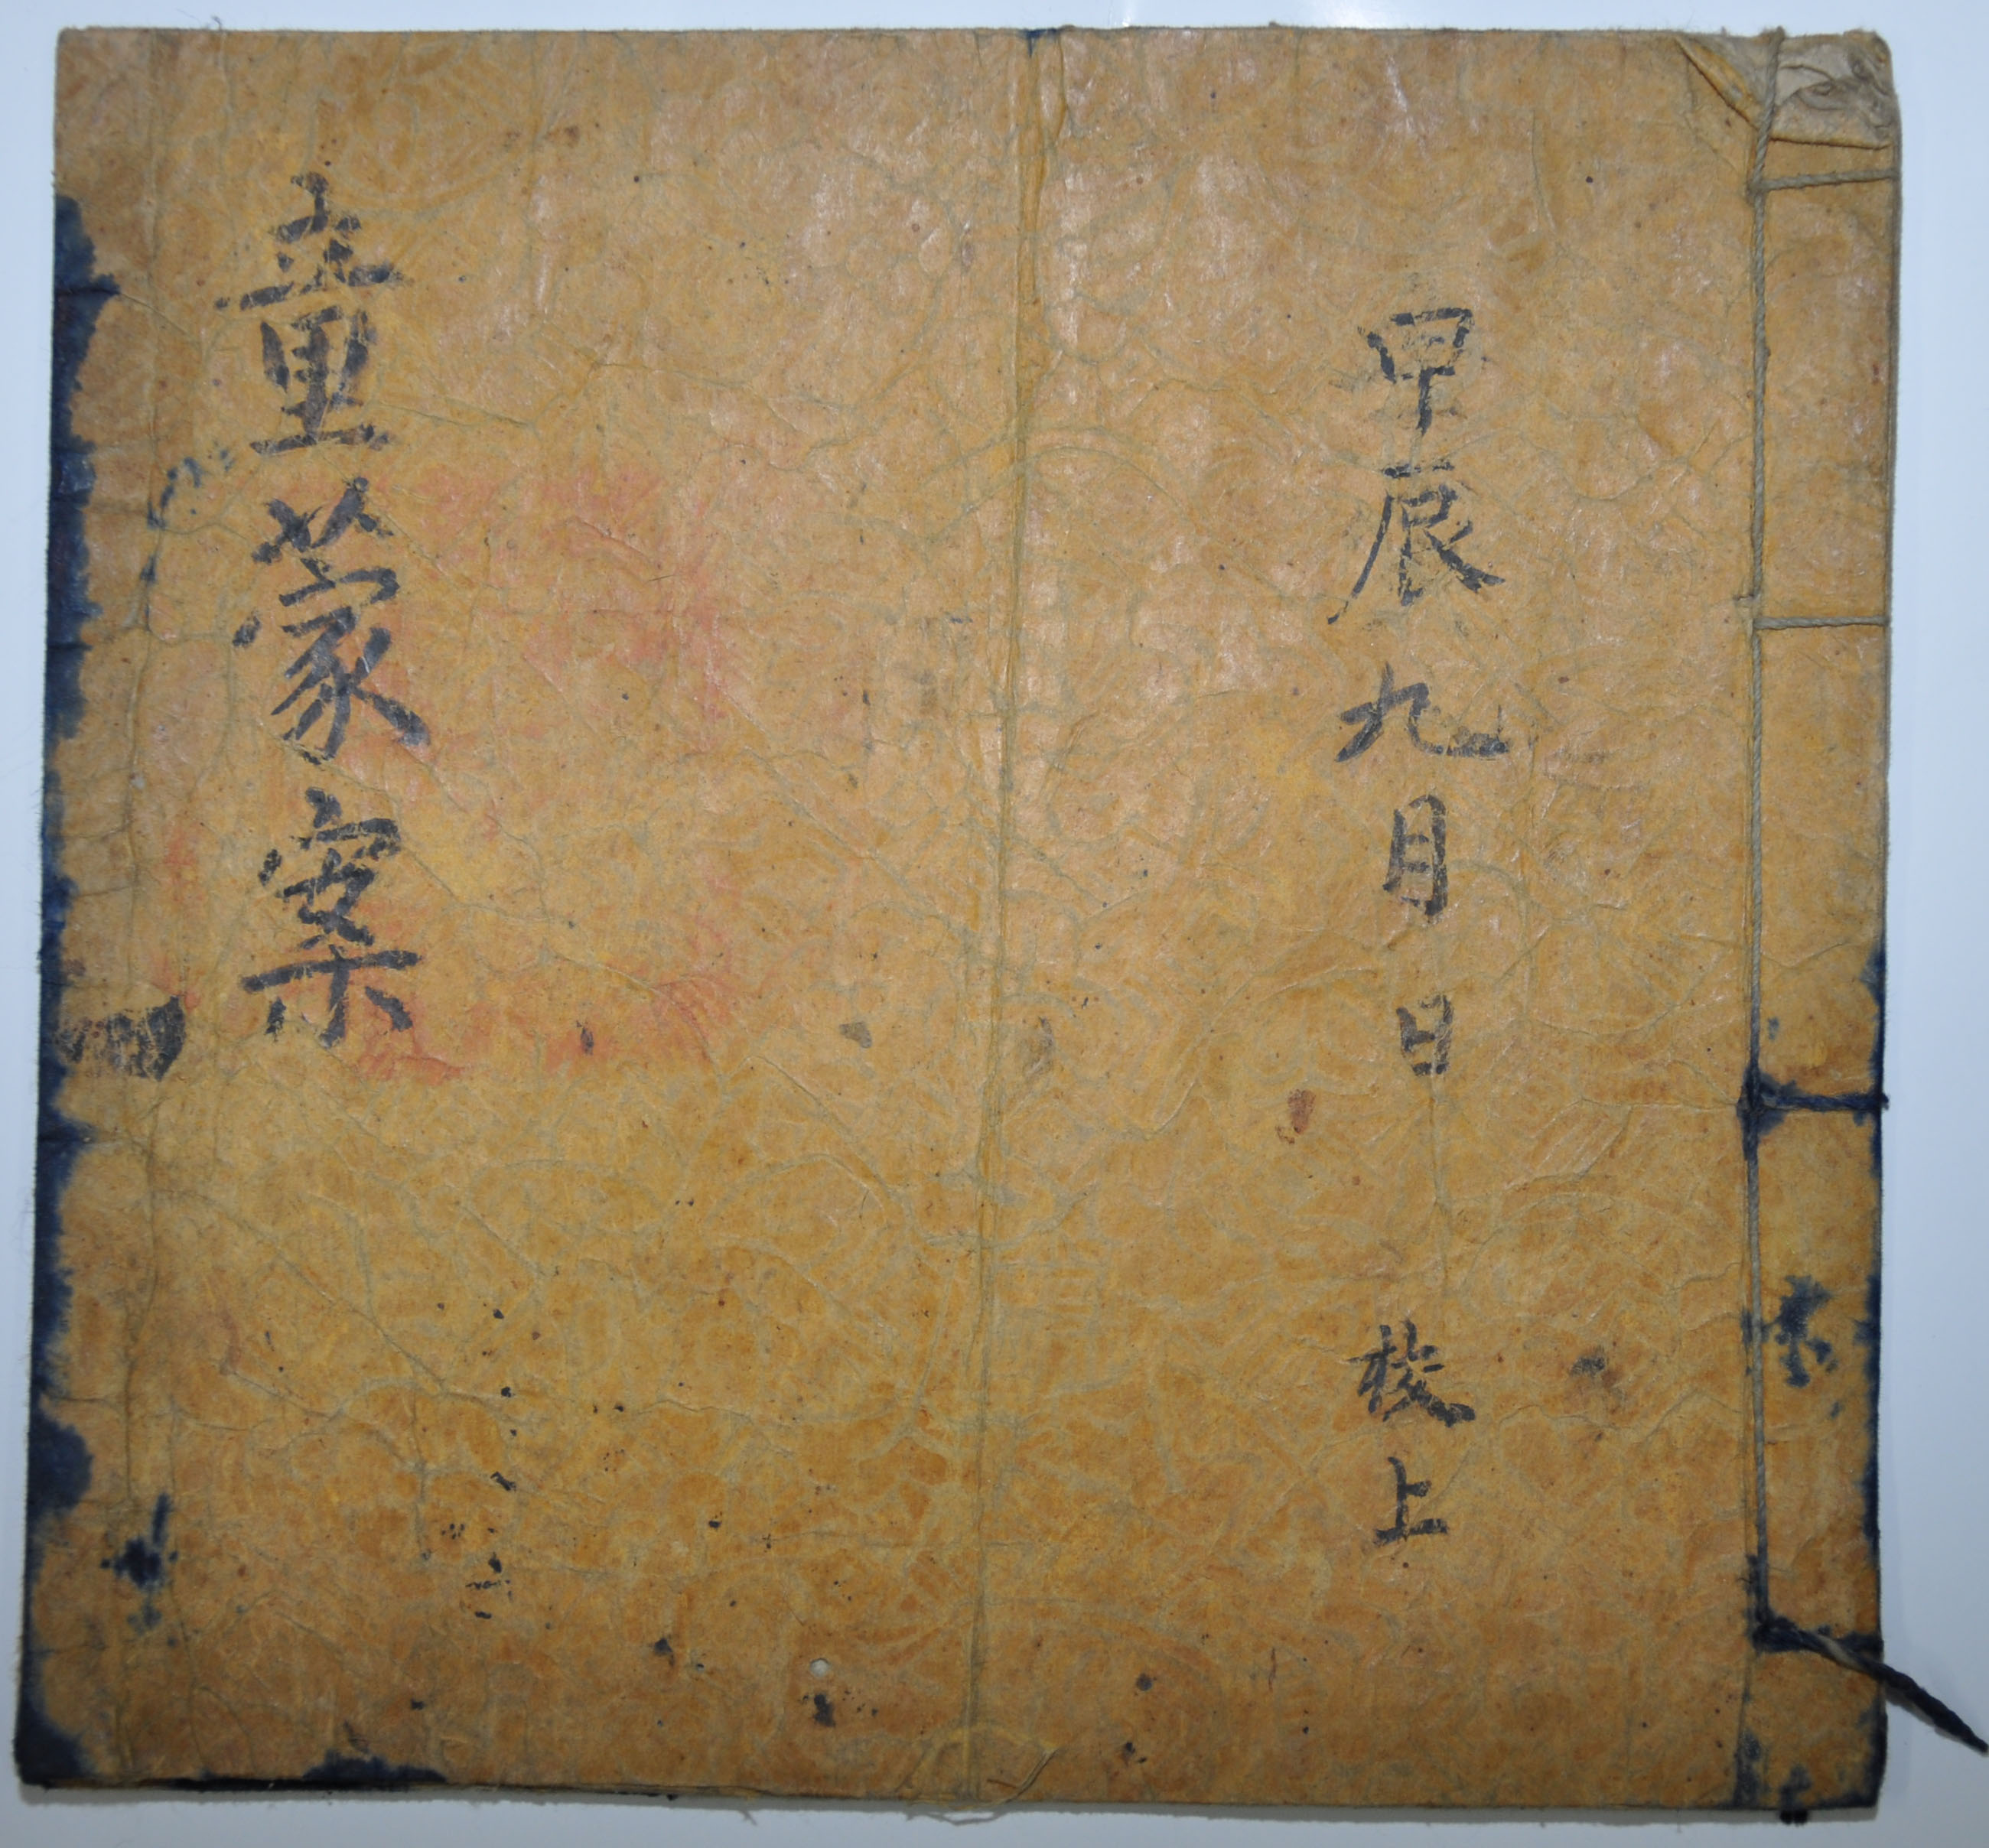 甲辰九月日 校上
童蒙案